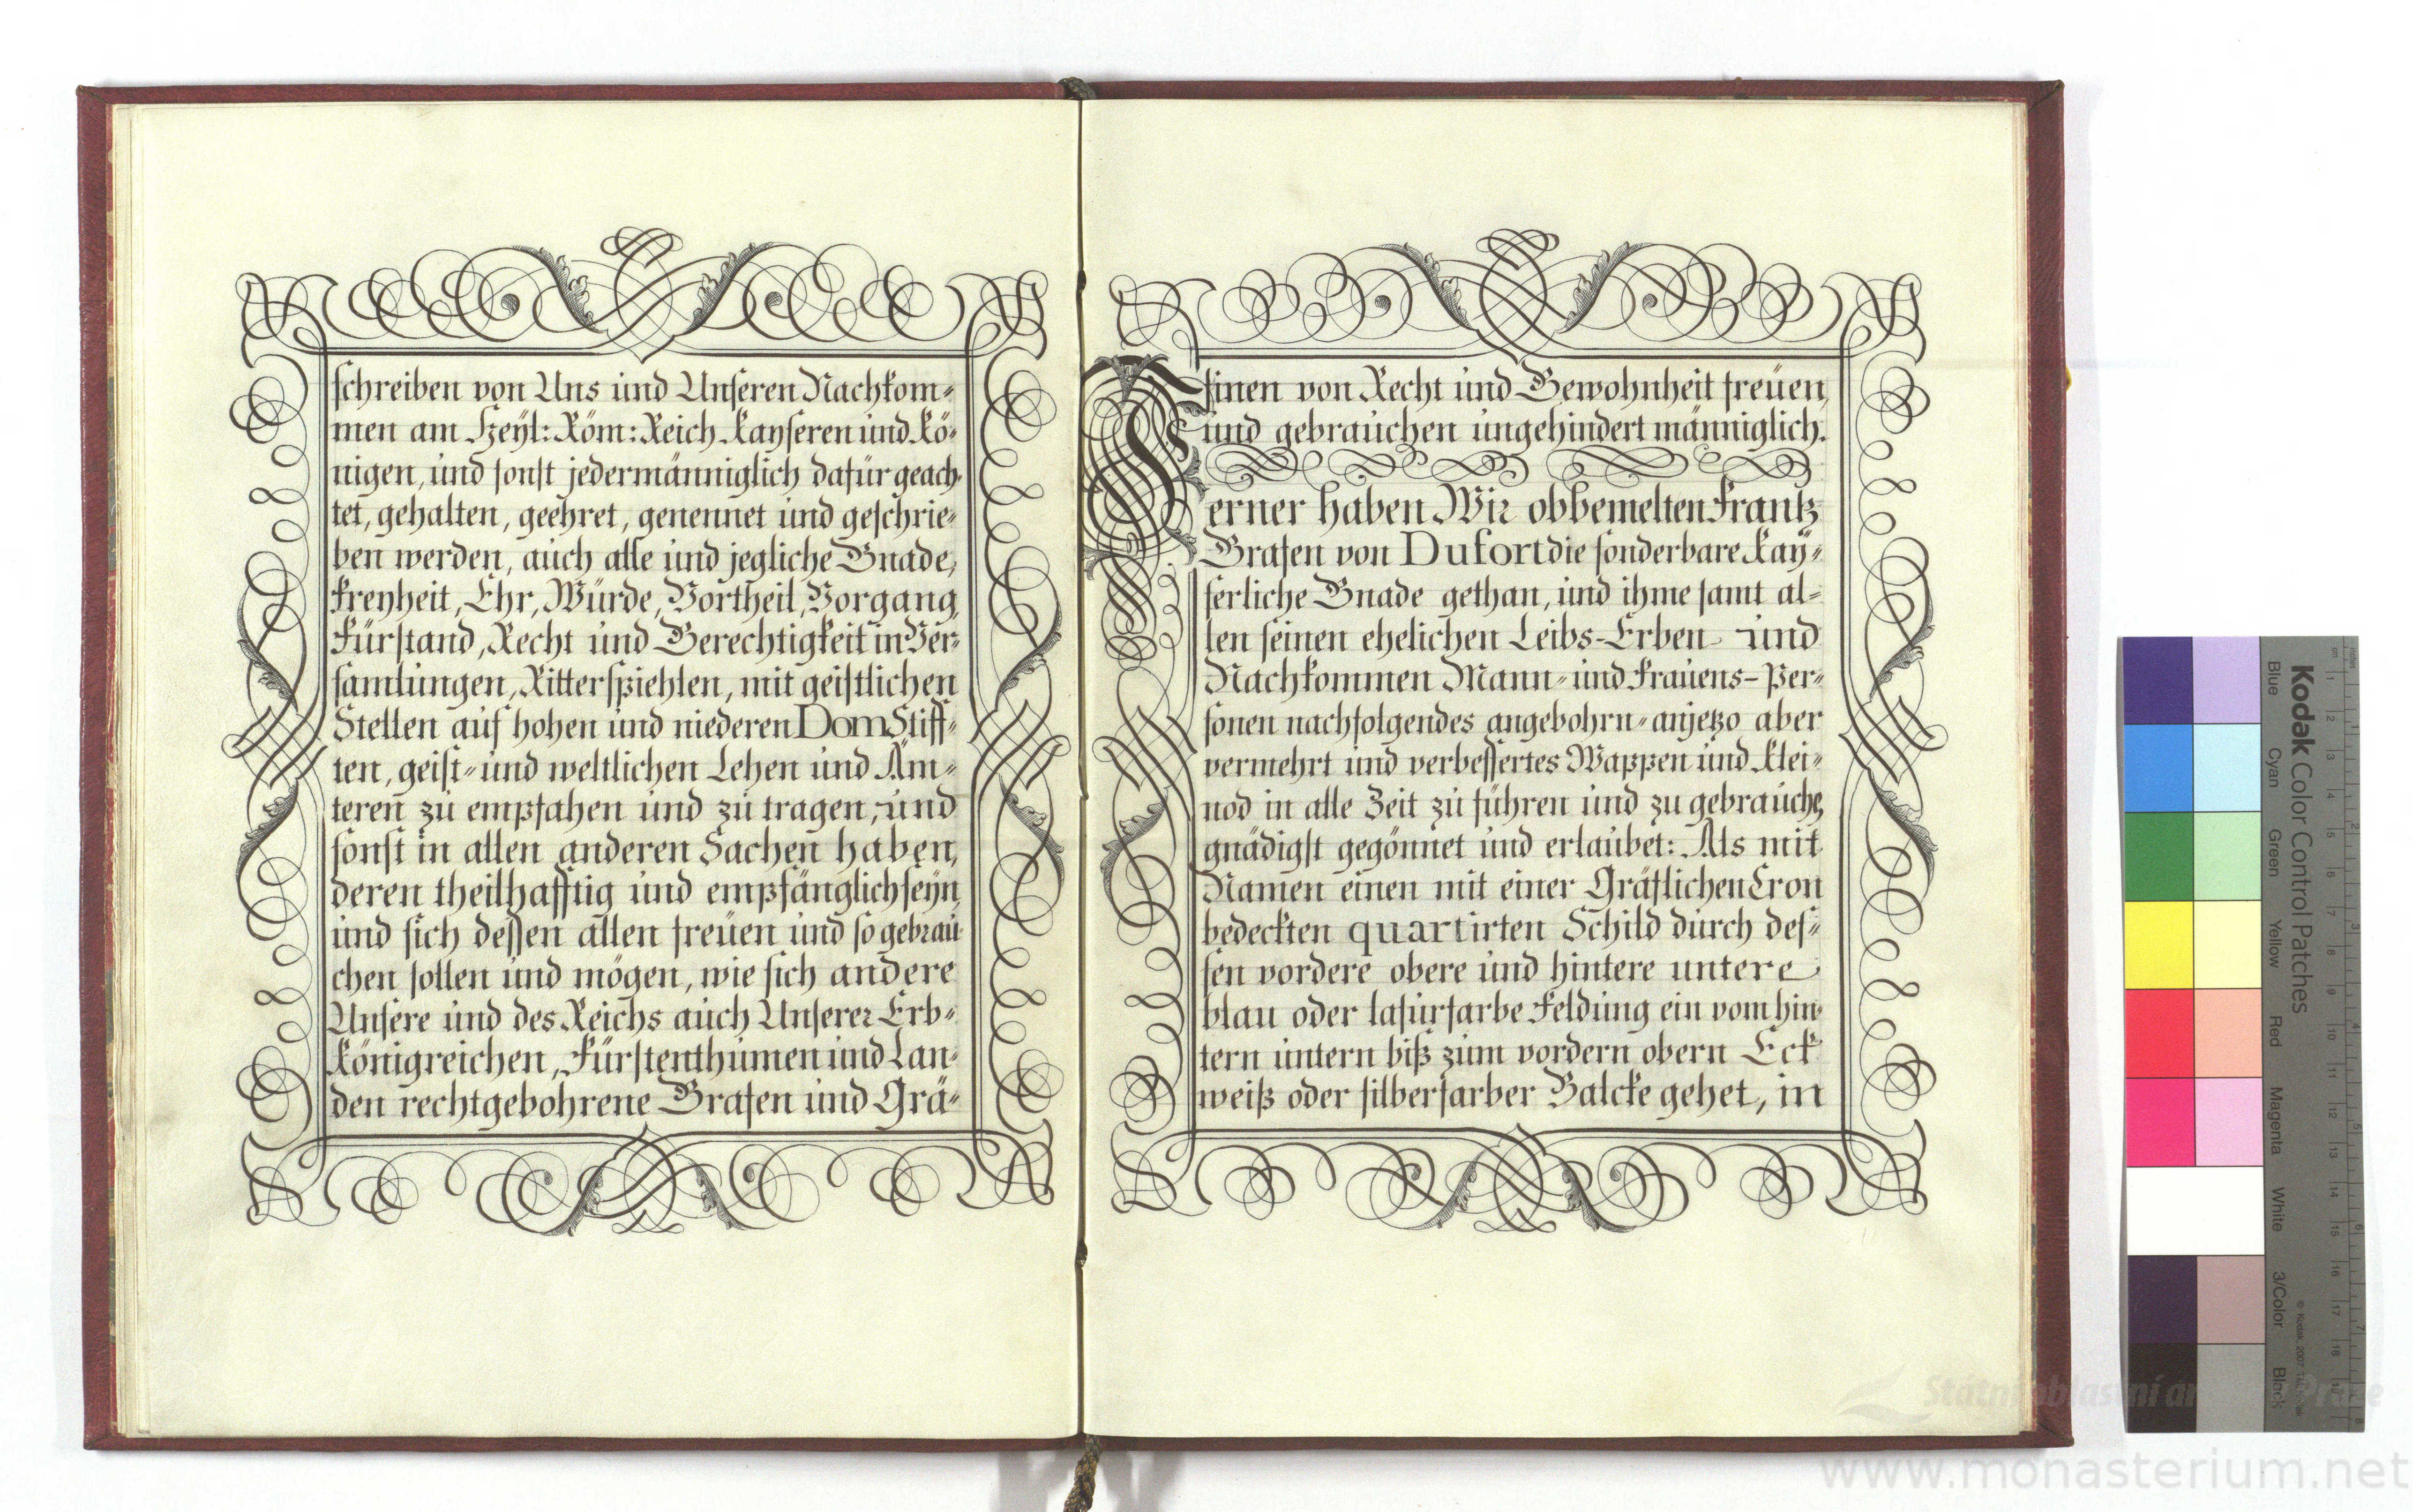 schreiben von Uns und Unseren Nachkom=
men am Heyl: Röm: Reich Kayseren und Kö=
nigen, und sonst jedermänniglich dafür geach=
tet, gehalten, geehret, genennet und geschrie=
ben werden, auch alle und jegliche Gnade,
Freyheit, Ehr, Würde, Vortheil, Vorgang,
Fürstand, Recht und Gerechtigkeit in Ver=
samlungen, Ritterspiehlen, mit geistlichen
Stellen auf hohen und niederen Dom Stiff=
ten, geist= und weltlichen Lehen und Äm=
teren zu empfahen und zu tragen, und
sonst in allen anderen Sachen haben,
deren theilhafftig und empfänglich seyn,
und sich dessen allen freuen und so gebrau
chen sollen und mögen, wie sich andere
Unsere und des Reichs auch Unserer Erb=
Königreichen, Fürstenthumen und Lan=
den rechtgebohrene Grafen und Grä=
finen von Recht und Gewohnheit freuen,
und gebrauchen ungehindert männiglich.
Ferner haben Wir obbemelten Frantz
Grafen von Dufort die sonderbare Kay=
serliche Gnade gethan, und ihme samt al=
len seinen ehelichen Leibs-Erben und
Nachkommen Mann= und Frauens-Per=
sonen nachfolgendes angebohrn= anjetzo aber
vermehrt und verbessertes Wappen und Klei=
nod in alle Zeit zu führen und zu gebrauche,
gnädigst gegönnet und erlaubet: Als mit
Namen einen mit einer Gräflichen Cron
bedeckten quartirten Schild durch des=
sen vordere obere und hintere untere
blau oder lasurfarbe Feldung ein vom hin=
tern untern biß zum vordern obern Eck
weiß oder silberfarber Balcke gehet, in
Kodak Color Control Patches
Blue
Cyan
Green
Yellow
Red
Magenta
White
3/Color
Black
Státní oblastní archiv v Praze
www.monasterium.net